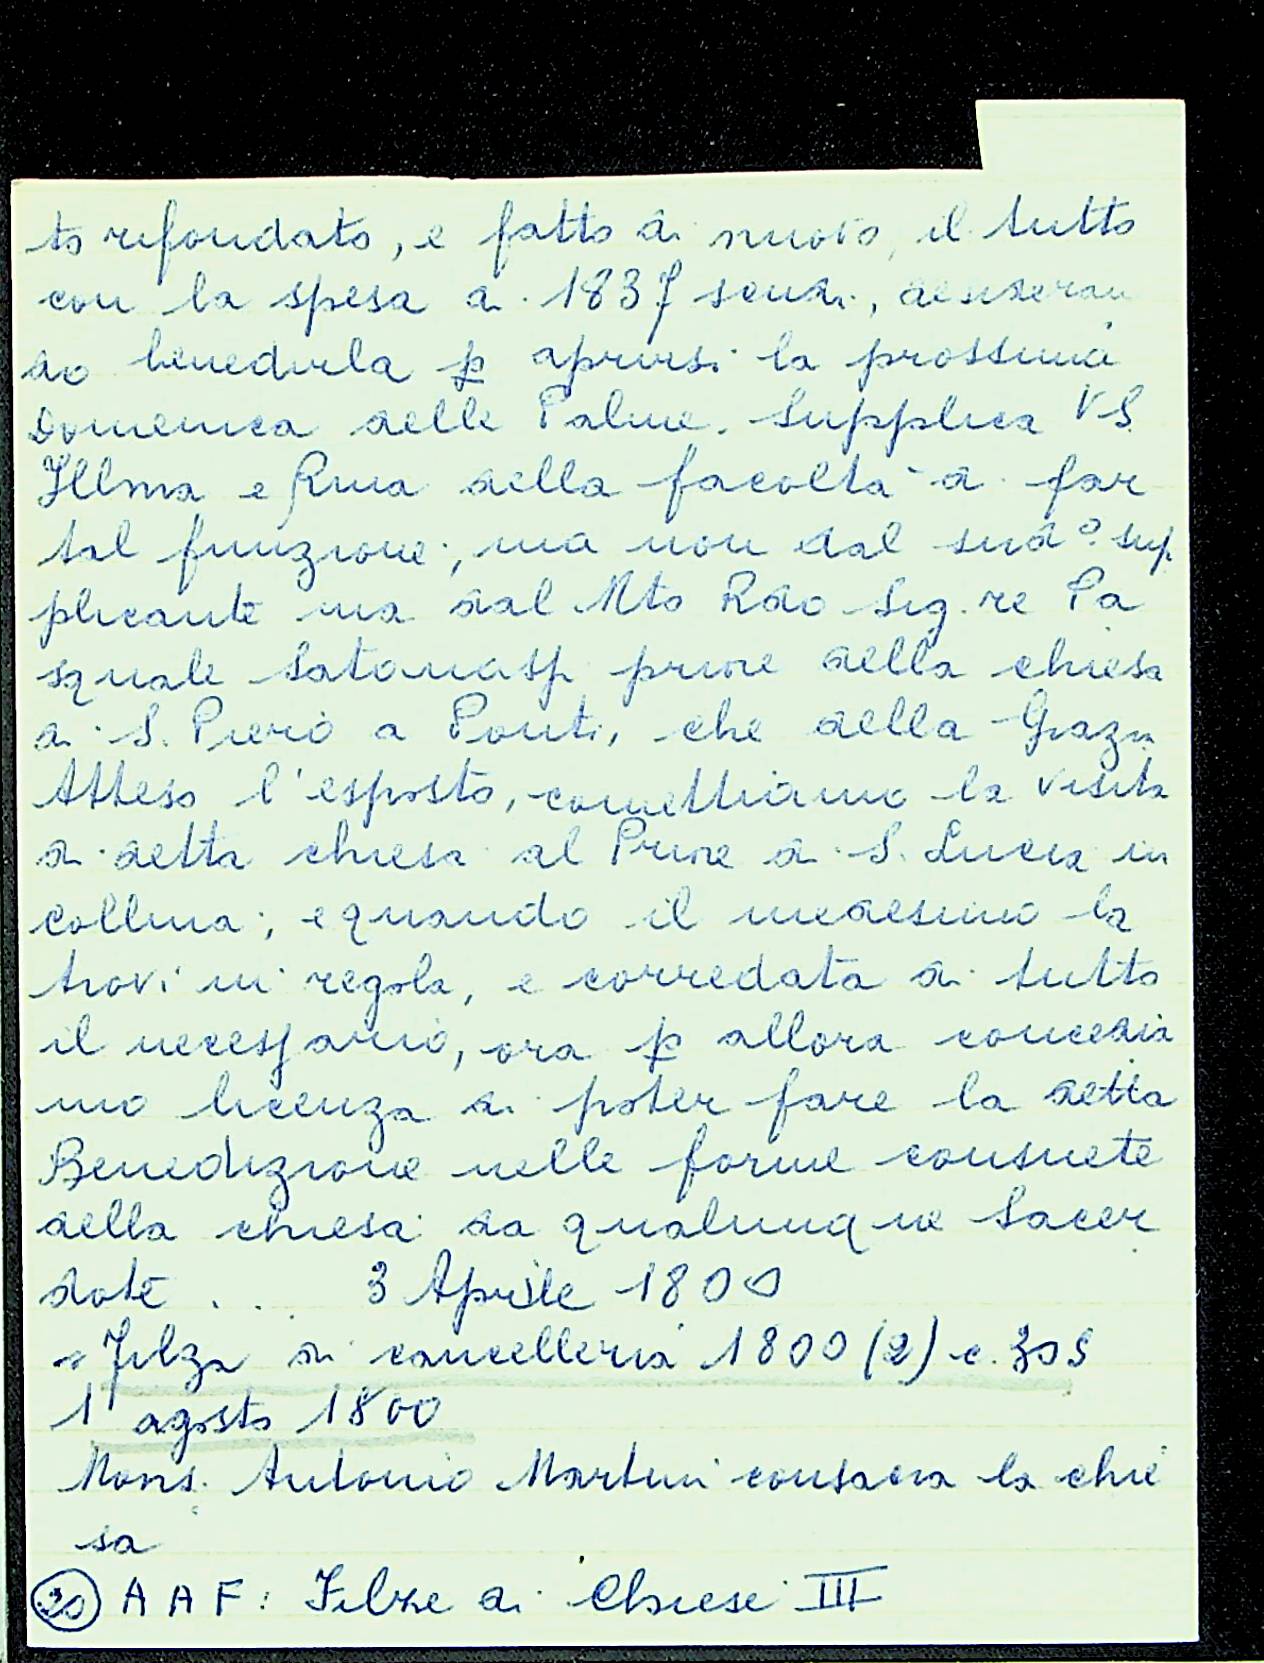 to rifondato, e fatto di nuovo, il tutto
con la spesa di 1837 scudi, desideran
do benedirla p aprirsi la prossima
Domenica delle Palme. Supplica VS
Illma e Rma della facoltà di far
tal funzione; ma non dal sudº sup
plicante ma dal Mto Rdo Sig.re Pa
squale priore della chiesa
di S. Piero a Ponti, che della Grazia
Atteso l'esposto, comettiamo la visita
di detta chiesa al Priore di S. Lucia in
Collina; e quando il medesimo la
trovi in regola, e corredata di tutto
il necessario, ora p allora concedia
mo licenza di poter fare la detta
Benedizione nelle forme consuete
della chiesa da qualunque Sacer
dote . . . 3 Aprile 1800
= Filza di cancelleria 1800 (2) c. 305
1 agosto 1800
Mons. Antonio Martini consacra la chie
sa
20 A A F: Filze di Chiese III